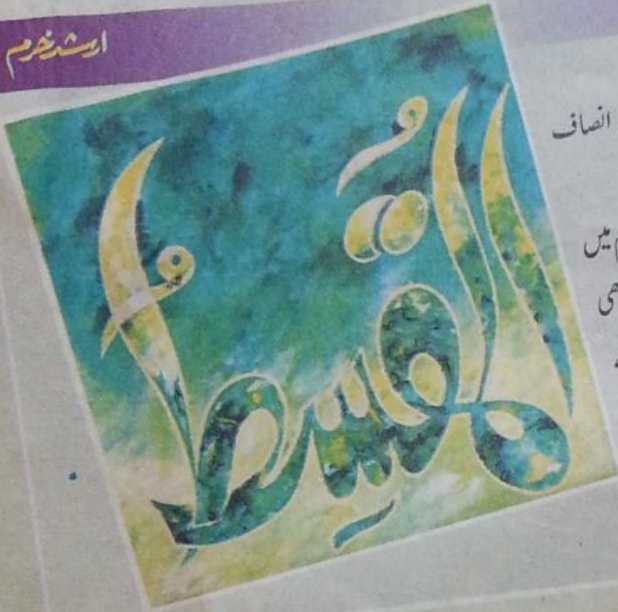 ارشد خرم
المُقْسِطُ
انصاف
میں